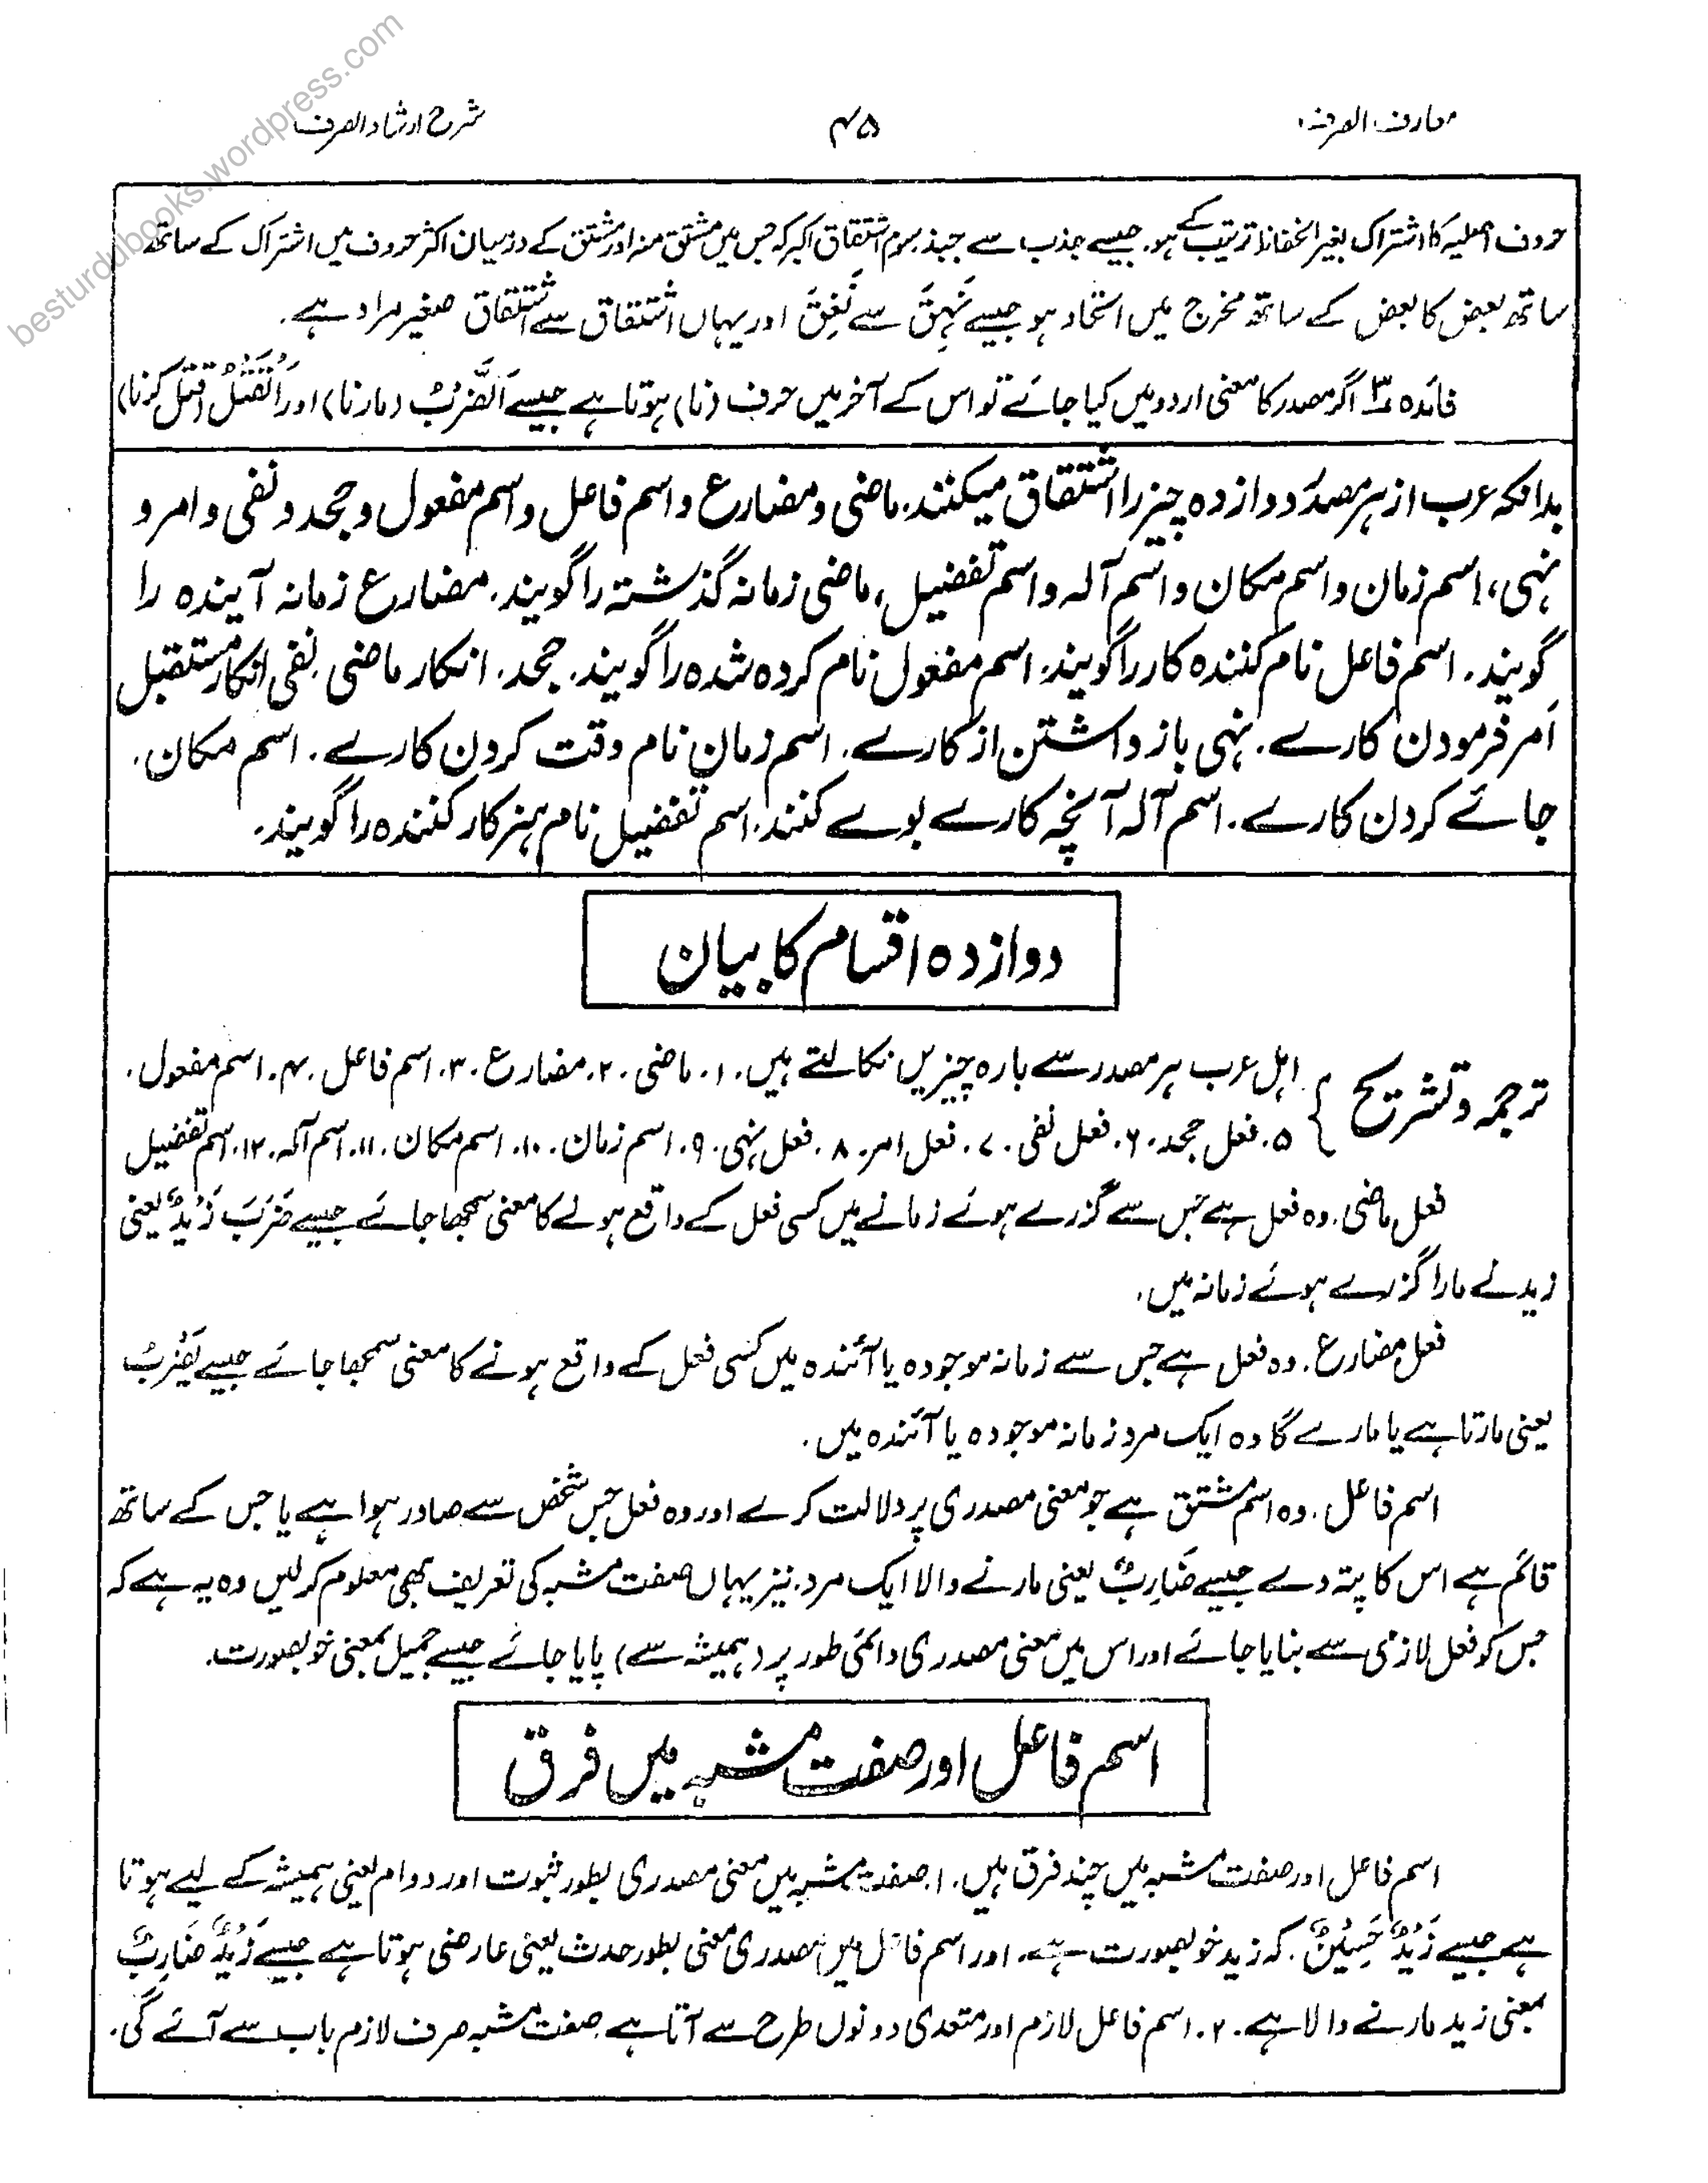 معارف الصرف
۴۵
شرح ارشاد الصرف
حروف اصلیہ کا اشتراک بغیر لحاظ ترتیب کے ہو. جیسے جذب سے جبذ سوم اشتقاق اکبر کہ جس میں مشتق منہ اور مشتق کے درمیان اکثر حروف میں اشتراک کے ساتھ
ساتھ بعض کا بعض کے ساتھ مخرج میں اتحاد ہو جیسے نَہِقَ سے نَعِقَ اور یہاں اشتقاق سے اشتقاق صغیر مراد ہے.
فائدہ ۳ اگر مصدر کا معنی اردو میں کیا جائے تو اس کے آخر میں حرف (نا) ہوتا ہے جیسے اَلضَّرْبُ (مارنا) اور اَلْقَتْلُ (قتل کرنا)
بدانکہ عرب از ہر مصدر دوازدہ چیز را اشتقاق میکنند. ماضی و مضارع و اسم فاعل و اسم مفعول و جحد و نفی و امر و
نہی، اسم زمان و اسم مکان و اسم آلہ و اسم تفضیل، ماضی زمانہ گذشتہ را گویند. مضارع زمانہ آیندہ را
گویند. اسم فاعل نام کنندہ کار را گویند. اسم مفعول نام کردہ شدہ را گویند. جحد. انکار ماضی. نفی انکار مستقبل
اَمر فرمودن کارے. نہی باز داشتن از کارے. اسم زمان نام وقت کردن کارے. اسم مکان.
جائے کردن کارے. اسم آلہ آنچہ کارے بوے کنند. اسم تفضیل نام بہتر کار کنندہ را گویند.
دوازدہ اقسام کا بیان
ترجمہ و تشریح } اہل عرب ہر مصدر سے بارہ چیزیں نکالتے ہیں. ۱. ماضی. ۲. مضارع. ۳. اسم فاعل. ۴. اسم مفعول.
۵. فعل جحد. ۶. فعل نفی. ۷. فعل امر. ۸. فعل نہی. ۹. اسم زمان. ۱۰. اسم مکان. ۱۱. اسم آلہ. ۱۲. اسم تفضیل
فعل ماضی. وہ فعل ہے جس سے گزرے ہوئے زمانے میں کسی فعل کے واقع ہونے کا معنی سمجھا جائے جیسے ضَرَبَ زَیْدٌ یعنی
زید نے مارا گزرے ہوئے زمانہ میں.
فعل مضارع. وہ فعل ہے جس سے زمانہ موجودہ یا آئندہ میں کسی فعل کے واقع ہونے کا معنی سمجھا جائے جیسے یَضْرِبُ
یعنی مارتا ہے یا مارے گا وہ ایک مرد زمانہ موجودہ یا آئندہ میں.
اسم فاعل. وہ اسم مشتق ہے جو معنی مصدری پر دلالت کرے اور وہ فعل جس شخص سے صادر ہوا ہے یا جس کے ساتھ
قائم ہے اس کا پتہ دے جیسے ضَارِبٌ یعنی مارنے والا ایک مرد. نیز یہاں صفت مشبہ کی تعریف بھی معلوم کر لیں وہ یہ ہے کہ
جس کو فعل لازمی سے بنایا جائے اور اس میں معنی مصدری دائمی طور پر (ہمیشہ سے) پایا جائے جیسے جمیل بمعنی خوبصورت.
اسم فاعل اور صفت مشبہ میں فرق
اسم فاعل اور صفت مشبہ میں چند فرق ہیں. ۱. صفت مشبہ میں معنی مصدری بطور ثبوت اور دوام یعنی ہمیشہ کے لیے ہوتا
ہے جیسے زَیْدٌ حَسِیْنٌ. کہ زید خوبصورت ہے. اور اسم فاعل میں مصدری معنی بطور حدث یعنی عارضی ہوتا ہے جیسے زَیْدٌ ضَارِبٌ
بمعنی زید مارنے والا ہے. ۲. اسم فاعل لازم اور متعدی دونوں طرح سے آتا ہے صفت مشبہ صرف لازم باب سے آئے گی.
besturdubooks.wordpress.com